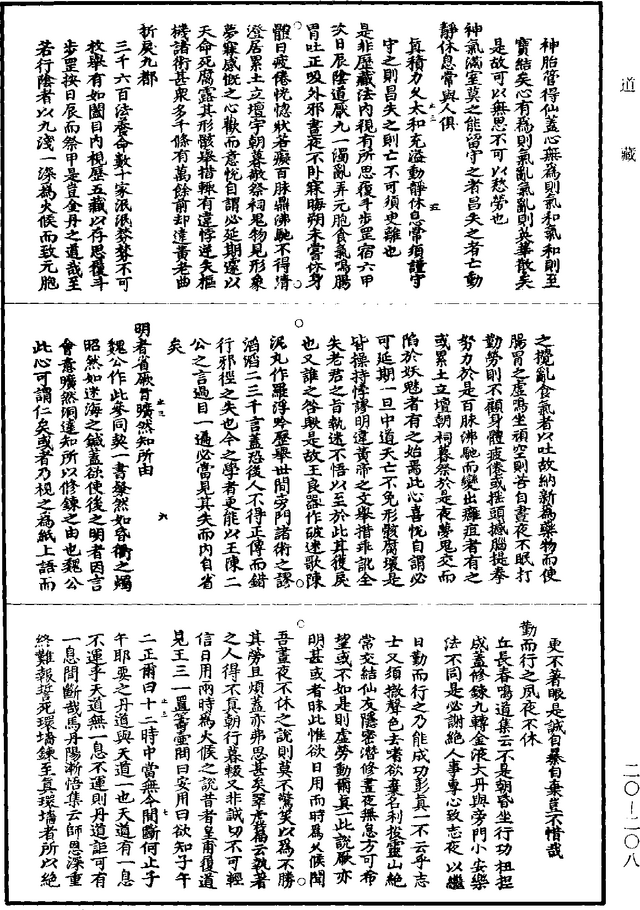 道藏
神胎管得仙蓋心無為則氣和氣和則至
寶結矣心有為則氣亂氣亂則英華散矣
是故可以無思不可以愁勞也
神氣滿室莫之能留守之者昌失之者亡動
靜休息常與人俱
真積力久太和充溢動靜休息常須謹守
守之則昌失之則亡不可須臾離也
是非歷藏法內視有所思履斗步罡宿六甲
次日辰陰道厭九一濁亂弄元胞食氣鳴腸
胃吐正吸外邪晝夜不卧寐晦朔未嘗休身
體日疲倦恍惚狀若癡百脉鼎沸馳不得清
澄居累土立壇宇朝暮敬祭祠鬼物見形象
夢寐感慨之心歡而意悅自謂必延期遽以
天命死腐露其形骸舉措輒有違悖逆失樞
機諸術甚衆多千條有萬餘前却違黃老曲
折戾九都
三千六百法養命數十家泯泯棼棼不可
枚舉有如閉目內視歷五藏以存思履斗
步罡按日辰而祭甲是豈金丹之道哉至
若行陰者以九淺一深為火候而致元胞
之攪亂食氣者以吐故納新為藥物而使
腸胃之虛鳴坐頑空則苦自晝夜不眠打
勤勞則不顧身體疲倦或搖頭撼腦提拳
努力於是百脉沸馳而變出癰疽者有之
或累土立壇朝祠暮祭於是夜夢鬼交而
陷於妖魅者有之始焉此心喜悅自謂必
可延期一旦中道夭亡不免形骸腐壞是
皆操持悖謬明違黃帝之文舉措乖訛全
失老君之旨執迷不悟以至於此其獲戾
也又誰之咎歟是故王良器作破迷歌陳
泥丸作羅浮吟歷舉世間旁門諸術之謬
滔滔二三千言蓋恐後人不得正傳而錯
行邪徑之失也今之學者更能以王陳二
公之言過目一遍必當見其失而內自省
矣
明者省厥旨曠然知所由
魏公作此參同契一書粲然如昏衢之燭
昭然如迷海之鍼蓋欲使後之明者因言
會意曠然洞達知所以修鍊之由也魏公
此心可謂仁矣或者乃視之為紙上語而
更不著眼是誠自暴自棄豈不惜哉
勤而行之夙夜不休
丘長春鳴道集云不是朝昏坐行功扭捏
成蓋修鍊九轉金液大丹與旁門小安樂
法不同是必謝絕人事專心致志夜以繼
日勤而行之乃能成功彭真一不云乎志
士又須撤聲色去嗜欲棄名利投靈山絕
常交結仙友隱密潛修晝夜無怠方可希
望或不如是則虛勞動爾真一此說厥亦
明甚或者昧此惟欲日用兩時為火候聞
吾晝夜不休之說則莫不驚笑以為不勝
其勞且煩蓋亦弗思甚矣翠虛篇云執著
之人得不真朝行暮輟又非誠切不可輕
信日用兩時為火候之說昔者皇甫復道
見王三一置籌壺問曰安用曰欲知子午
二正爾曰十二時中當無令間斷何止子
午耶要之丹道與天道一也天道有一息
不運乎天道無一息不運則丹道詎可有
一息間斷哉馬丹陽漸悟集云師恩深重
終難報誓死環墻鍊至真環墻者所以絕
二〇-二〇八